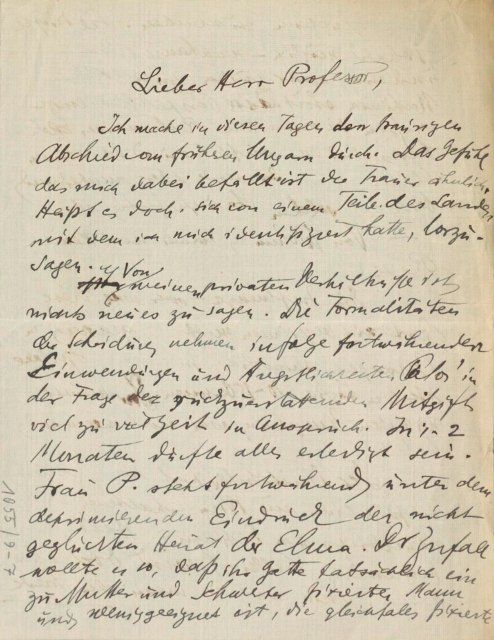 Lieber Herr Professor,
Ich mache in diesen Tagen den traurigen
Abschied vom früheren Ungarn durch. Das Gefühl
das mich dabei befällt ist der Trauer ähnlich.
Heißt es doch, sich von einem Teile des Landes,
mit dem ich mich identifiziert hatte, loszu-
sagen.
Von meinen privaten Verhältnissen ist
nichts neues zu sagen. Die Formalitäten
der Scheidung nehmen infolge fortwährender
Einwendungen und Ängstlichkeiten Palos' in
der Frage der rückzuerstattenden Mitgift
viel zu viel Zeit in Anspruch. In 1-2
Monaten dürfte alles erledigt sein.
Frau P. steht fortwährend unter dem
deprimierenden Eindruck der nicht
geglückten Heirat der Elma. Der Zufall
wollte es so, daß ihr Gatte tatsächlich ein
zu Mutter und Schwester fixierter Mann
und wenig geeignet ist, die gleichfalls fixierte
1055/9-7